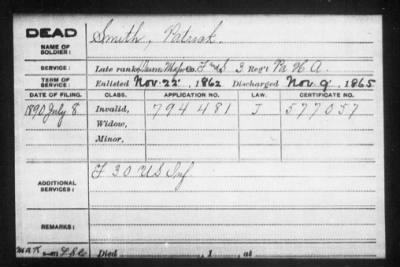 DEAD
NAME OF SOLDIER: Smith, Patrick
SERVICE: Late rank, Drum Major Co. F & S, 3 Reg't Pa. H A.
TERM OF SERVICE: Enlisted Nov 22, 1862 Discharged Nov 9, 1865
DATE OF FILING. CLASS. APPLICATION NO. LAW. CERTIFICATE NO.
1890 July 8 Invalid, 794481 J 577057
Widow,
Minor,
ADDITIONAL SERVICES: F 30 US Inf
REMARKS:
Died , 1 , at